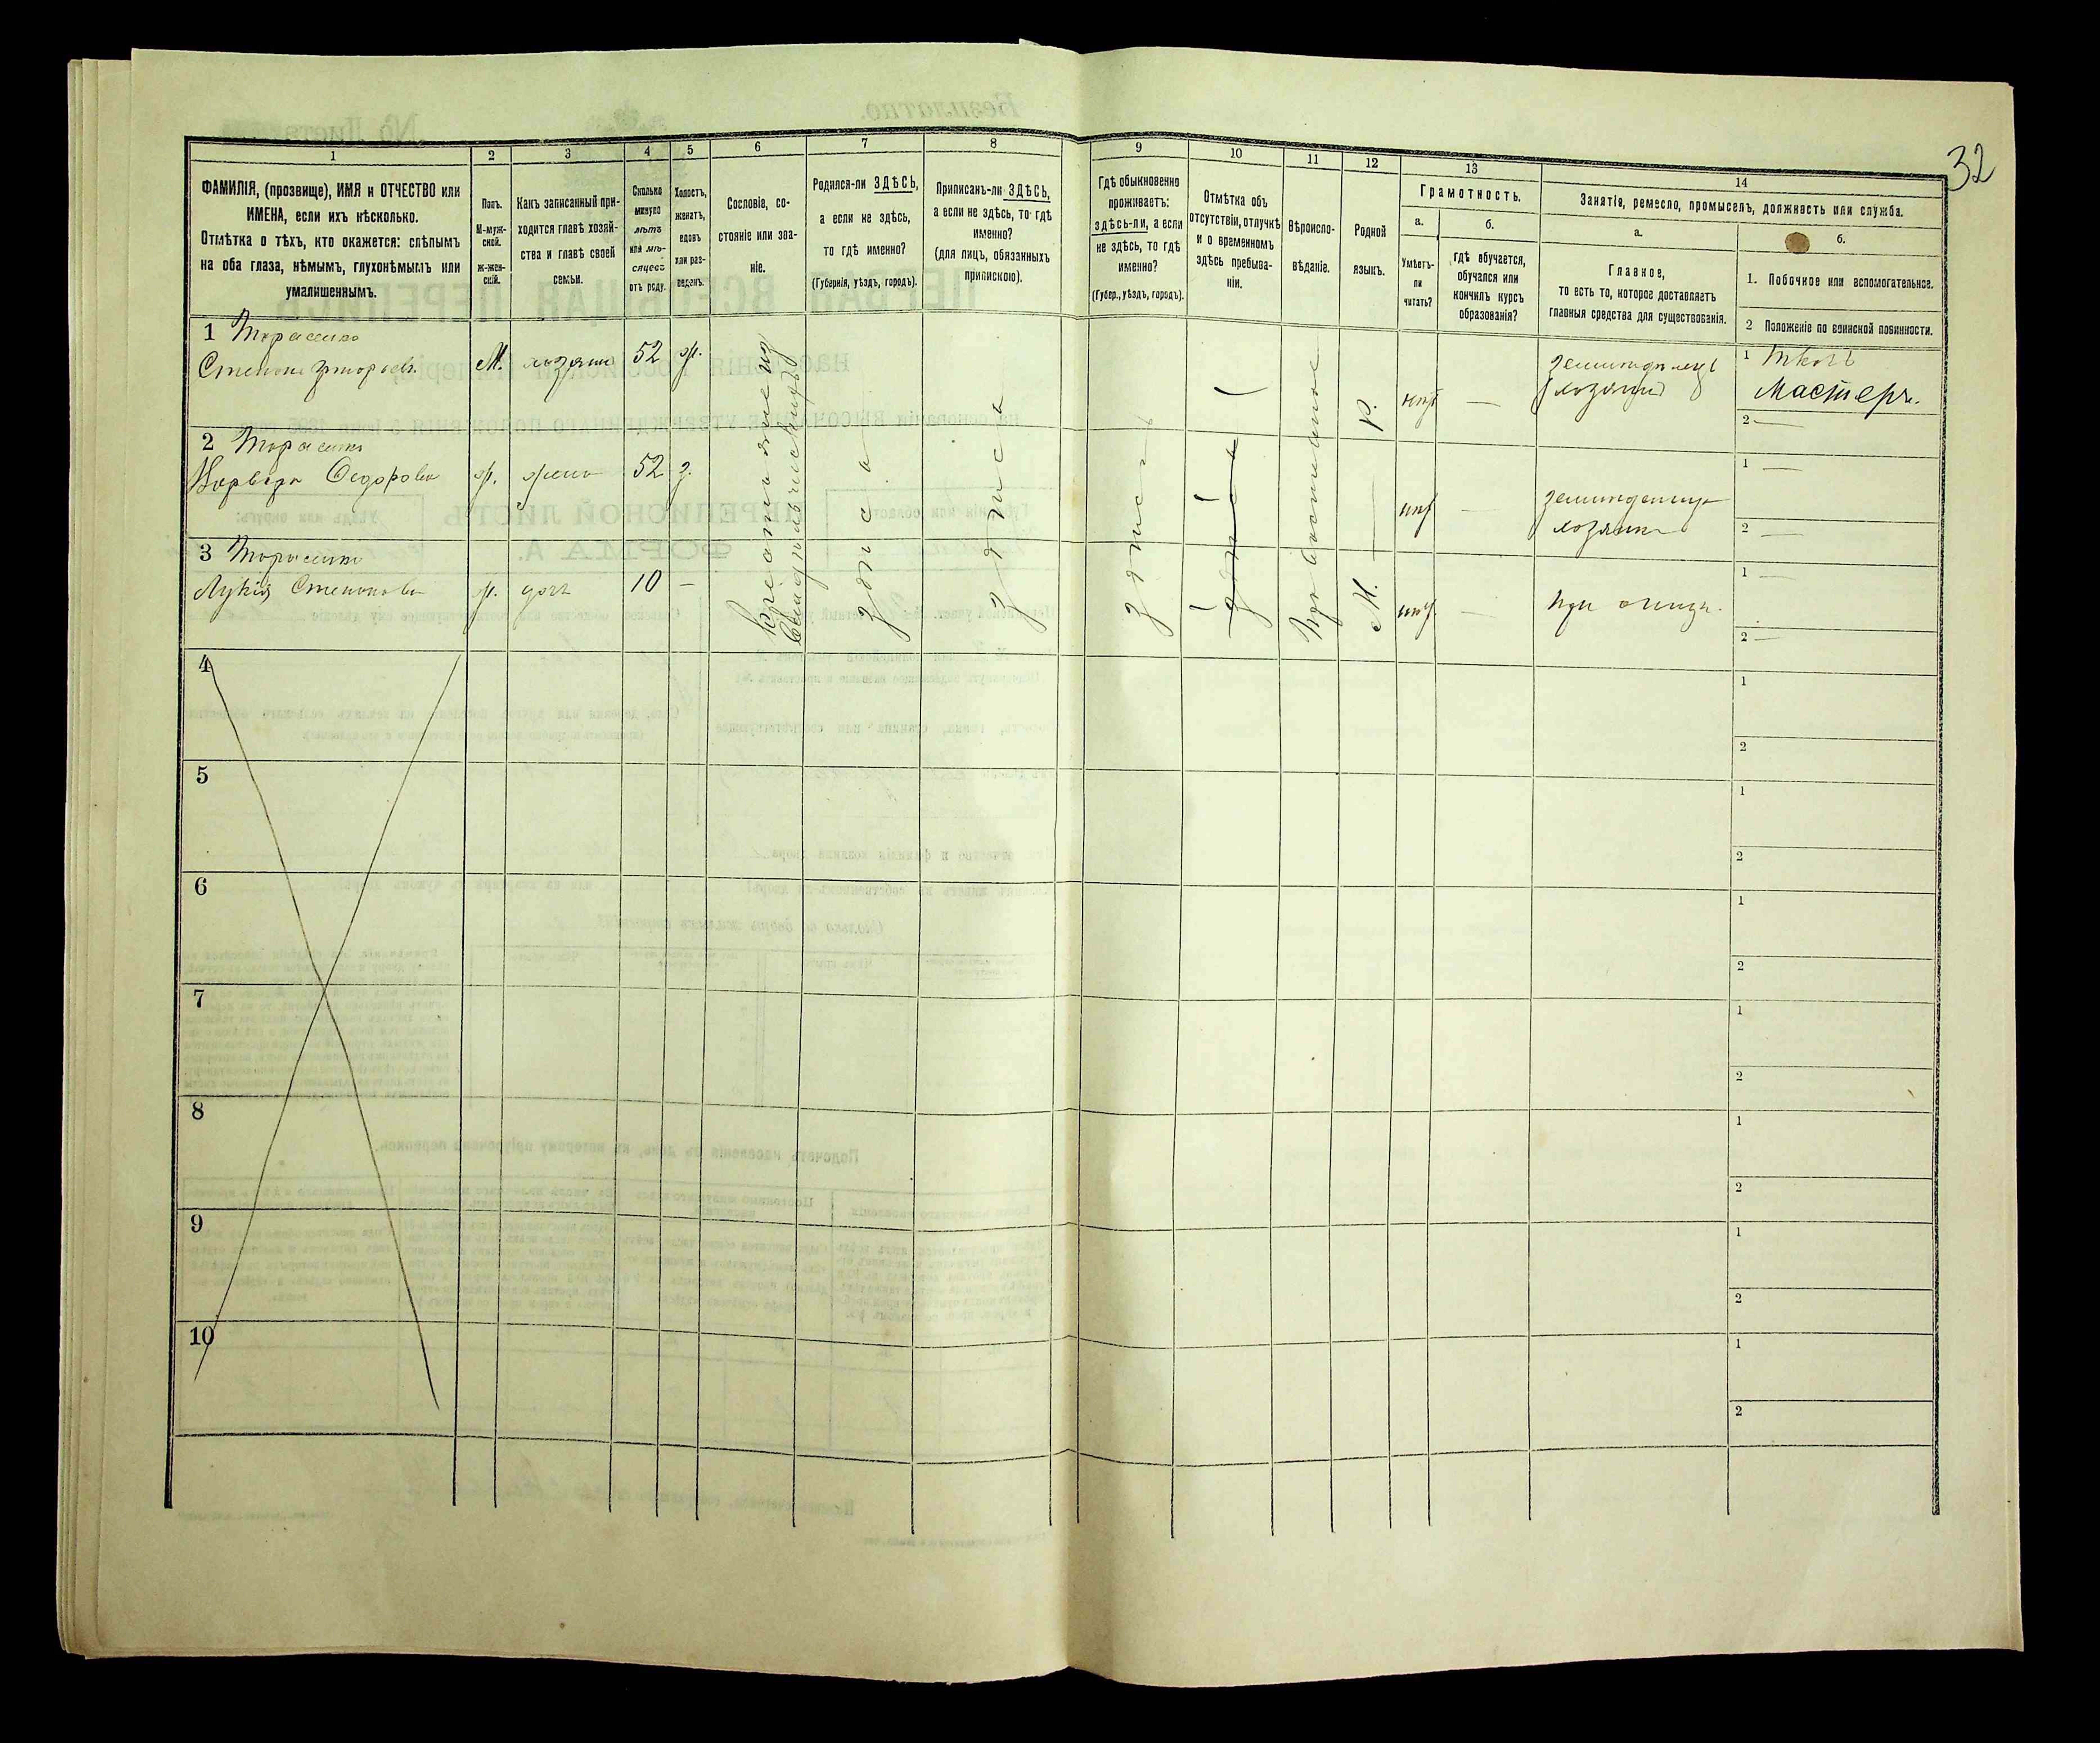 32
1
2
3
4
5
6
7
8
9
10
11
12
13
14
ФАМИЛІЯ, (прозвище), ИМЯ и ОТЧЕСТВО или
ИМЕНА, если ихъ нѣсколько.
Отмѣтка о тѣхъ, кто окажется: слѣпымъ
на оба глаза, нѣмымъ, глухонѣмымъ или
умалишеннымъ.
Полъ.
М-муж-
ской.
ж-жен-
скій.
Какъ записанный при-
ходится главѣ хозяй-
ства и главѣ своей
семьи.
Сколько
минуло
лѣтъ
или мѣ-
сяцевъ
отъ роду.
Холостъ,
женатъ,
вдовъ
или раз-
веденъ.
Сословіе, со-
стояніе или зва-
ніе.
Родился-ли ЗДѢСЬ,
а если не здѣсь,
то гдѣ именно?
(Губернія, уѣздъ, городъ).
Приписанъ-ли ЗДѢСЬ,
а если не здѣсь, то гдѣ
именно?
(для лицъ, обязанныхъ
припискою).
Гдѣ обыкновенно
проживаетъ:
здѣсь-ли, а если
не здѣсь, то гдѣ
именно?
(Губер., уѣздъ, городъ).
Отмѣтка объ
отсутствіи, отлучкѣ
и о временномъ
здѣсь пребыва-
ніи.
Вѣроиспо-
вѣданіе.
Родной
языкъ.
Грамотность.
а.
Умѣетъ-
ли
читать?
б.
гдѣ обучается,
обучался или
кончилъ курсъ
образованія?
Занятіе, ремесло, промыселъ, должность или служба.
а.
Главное,
то есть то, которое доставляетъ
главныя средства для существованія.
б.
1. Побочное или вспомогательное.
2 Положеніе по воинской повинности.
1 Тарасенко
Степанъ
М.
хозяинъ
52
ж.
Р.
нѣт
—
хозяинъ
1 Ткачъ
Мастеръ.
2 —
2 Тарасенко
Варвара Федорова
ж.
жена
52
з.
нѣт
—
хозяйка
1 —
2 —
3 Тарасенко
Лукія Степанова
ж.
дочь
10
—
М.
нѣт
—
при отцѣ.
1 —
2 —
здѣсь
здѣсь
здѣсь
Православное
4
1
2
5
1
2
6
1
2
7
1
2
8
1
2
9
1
2
10
1
2